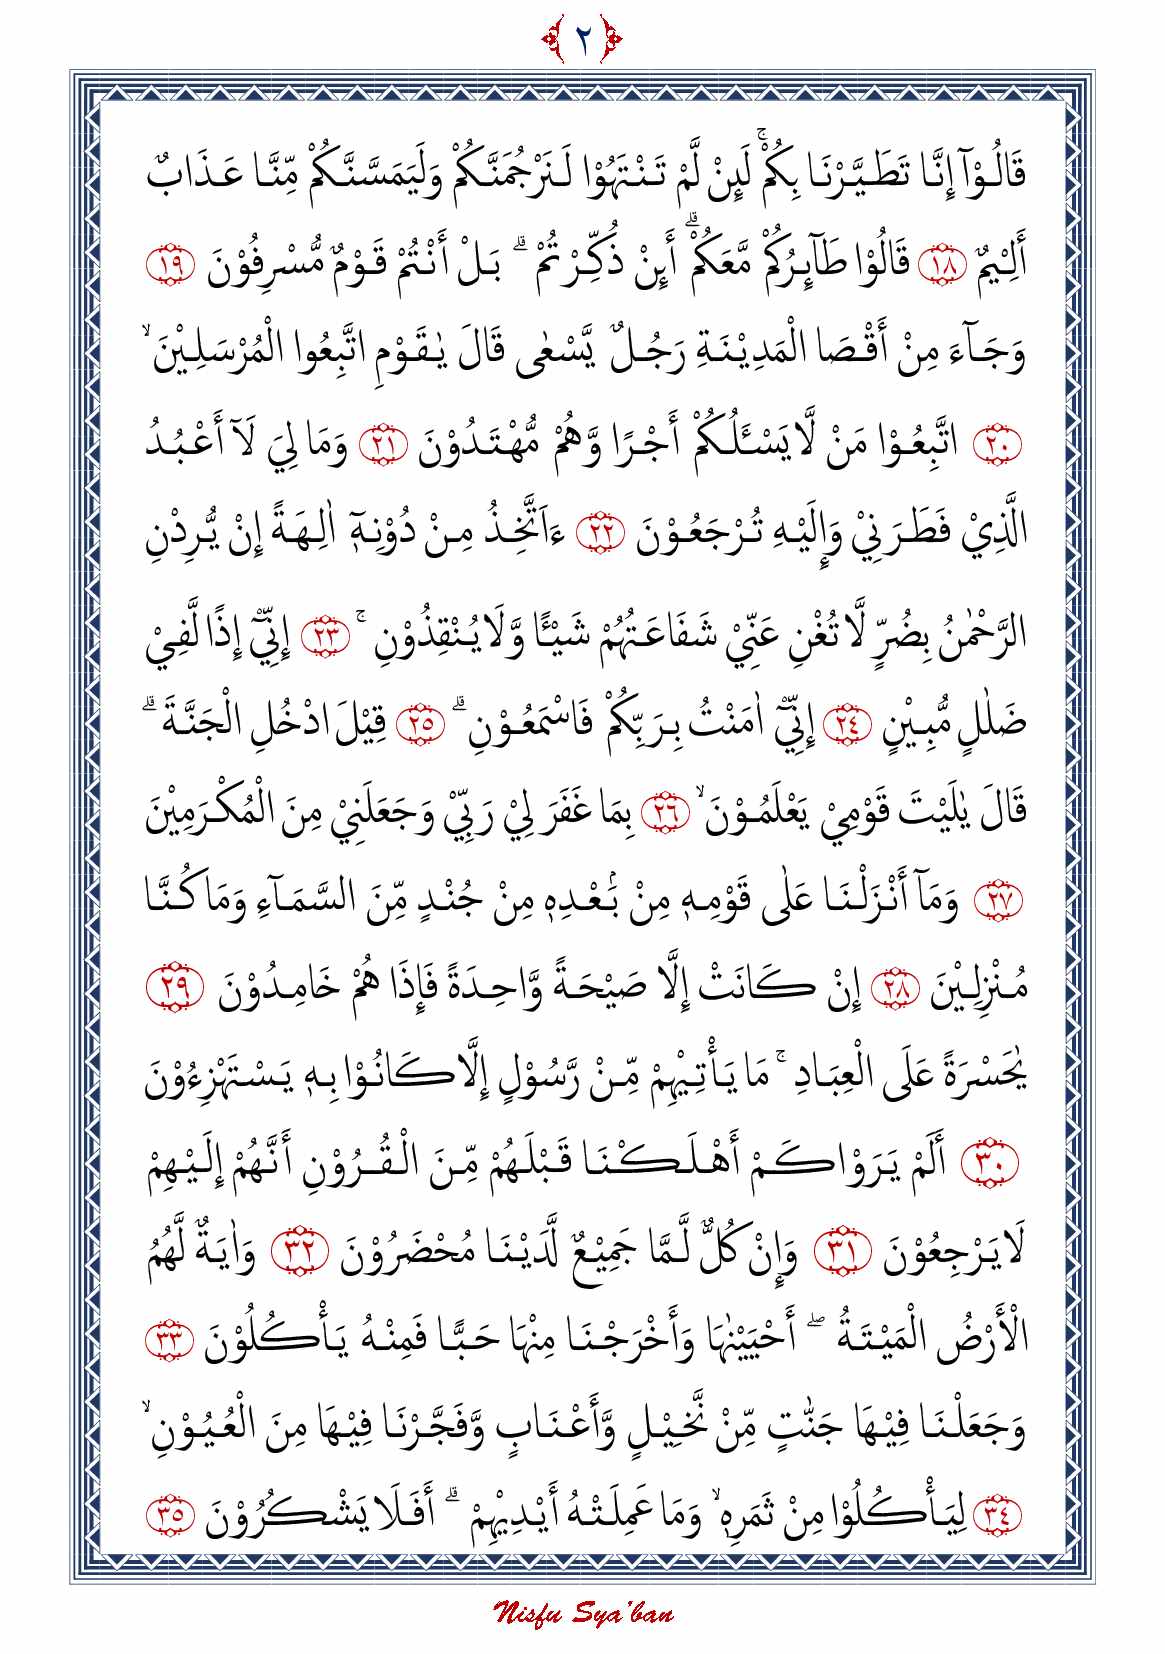 ٢
قَالُوْٓا إِنَّا تَطَيَّرْنَا بِكُمْۚ لَئِنْ لَّمْ تَنْتَهُوْا لَنَرْجُمَنَّكُمْ وَلَيَمَسَّنَّكُمْ مِّنَّا عَذَابٌ
أَلِيْمٌ ١٨ قَالُوْا طَآئِرُكُمْ مَّعَكُمْۗ أَئِنْ ذُكِّرْتُمْ ۗ بَلْ أَنْتُمْ قَوْمٌ مُّسْرِفُوْنَ ١٩
وَجَآءَ مِنْ أَقْصَا الْمَدِيْنَةِ رَجُلٌ يَّسْعٰى قَالَ يٰقَوْمِ اتَّبِعُوا الْمُرْسَلِيْنَۙ
٢٠ اتَّبِعُوْا مَنْ لَّا يَسْئَلُكُمْ أَجْرًا وَّهُمْ مُّهْتَدُوْنَ ٢١ وَمَا لِيَ لَآ أَعْبُدُ
الَّذِيْ فَطَرَنِيْ وَإِلَيْهِ تُرْجَعُوْنَ ٢٢ ءَاَتَّخِذُ مِنْ دُوْنِهٖٓ اٰلِهَةً إِنْ يُّرِدْنِ
الرَّحْمٰنُ بِضُرٍّ لَّا تُغْنِ عَنِّيْ شَفَاعَتُهُمْ شَيْئًا وَّلَا يُنْقِذُوْنِ ۚ ٢٣ إِنِّيْٓ إِذًا لَّفِيْ
ضَلٰلٍ مُّبِيْنٍ ٢٤ إِنِّيْٓ اٰمَنْتُ بِرَبِّكُمْ فَاسْمَعُوْنِ ۗ ٢٥ قِيْلَ ادْخُلِ الْجَنَّةَ ۗ
قَالَ يٰلَيْتَ قَوْمِيْ يَعْلَمُوْنَۙ ٢٦ بِمَا غَفَرَ لِيْ رَبِّيْ وَجَعَلَنِيْ مِنَ الْمُكْرَمِيْنَ
٢٧ وَمَآ أَنْزَلْنَا عَلٰى قَوْمِهٖ مِنْ بَۢعْدِهٖ مِنْ جُنْدٍ مِّنَ السَّمَآءِ وَمَا كُنَّا
مُنْزِلِيْنَ ٢٨ إِنْ كَانَتْ إِلَّا صَيْحَةً وَّاحِدَةً فَإِذَا هُمْ خَامِدُوْنَ ٢٩
يٰحَسْرَةً عَلَى الْعِبَادِ ۚ مَا يَأْتِيْهِمْ مِّنْ رَّسُوْلٍ إِلَّا كَانُوْا بِهٖ يَسْتَهْزِءُوْنَ
٣٠ أَلَمْ يَرَوْا كَمْ أَهْلَكْنَا قَبْلَهُمْ مِّنَ الْقُرُوْنِ أَنَّهُمْ إِلَيْهِمْ
لَا يَرْجِعُوْنَ ٣١ وَإِنْ كُلٌّ لَّمَّا جَمِيْعٌ لَّدَيْنَا مُحْضَرُوْنَ ٣٢ وَاٰيَةٌ لَّهُمُ
الْأَرْضُ الْمَيْتَةُ ۖ أَحْيَيْنٰهَا وَأَخْرَجْنَا مِنْهَا حَبًّا فَمِنْهُ يَأْكُلُوْنَ ٣٣
وَجَعَلْنَا فِيْهَا جَنّٰتٍ مِّنْ نَّخِيْلٍ وَّأَعْنَابٍ وَّفَجَّرْنَا فِيْهَا مِنَ الْعُيُوْنِۙ
٣٤ لِيَأْكُلُوْا مِنْ ثَمَرِهٖۙ وَمَا عَمِلَتْهُ أَيْدِيْهِمْ ۗ أَفَلَا يَشْكُرُوْنَ ٣٥
Nisfu Sya'ban